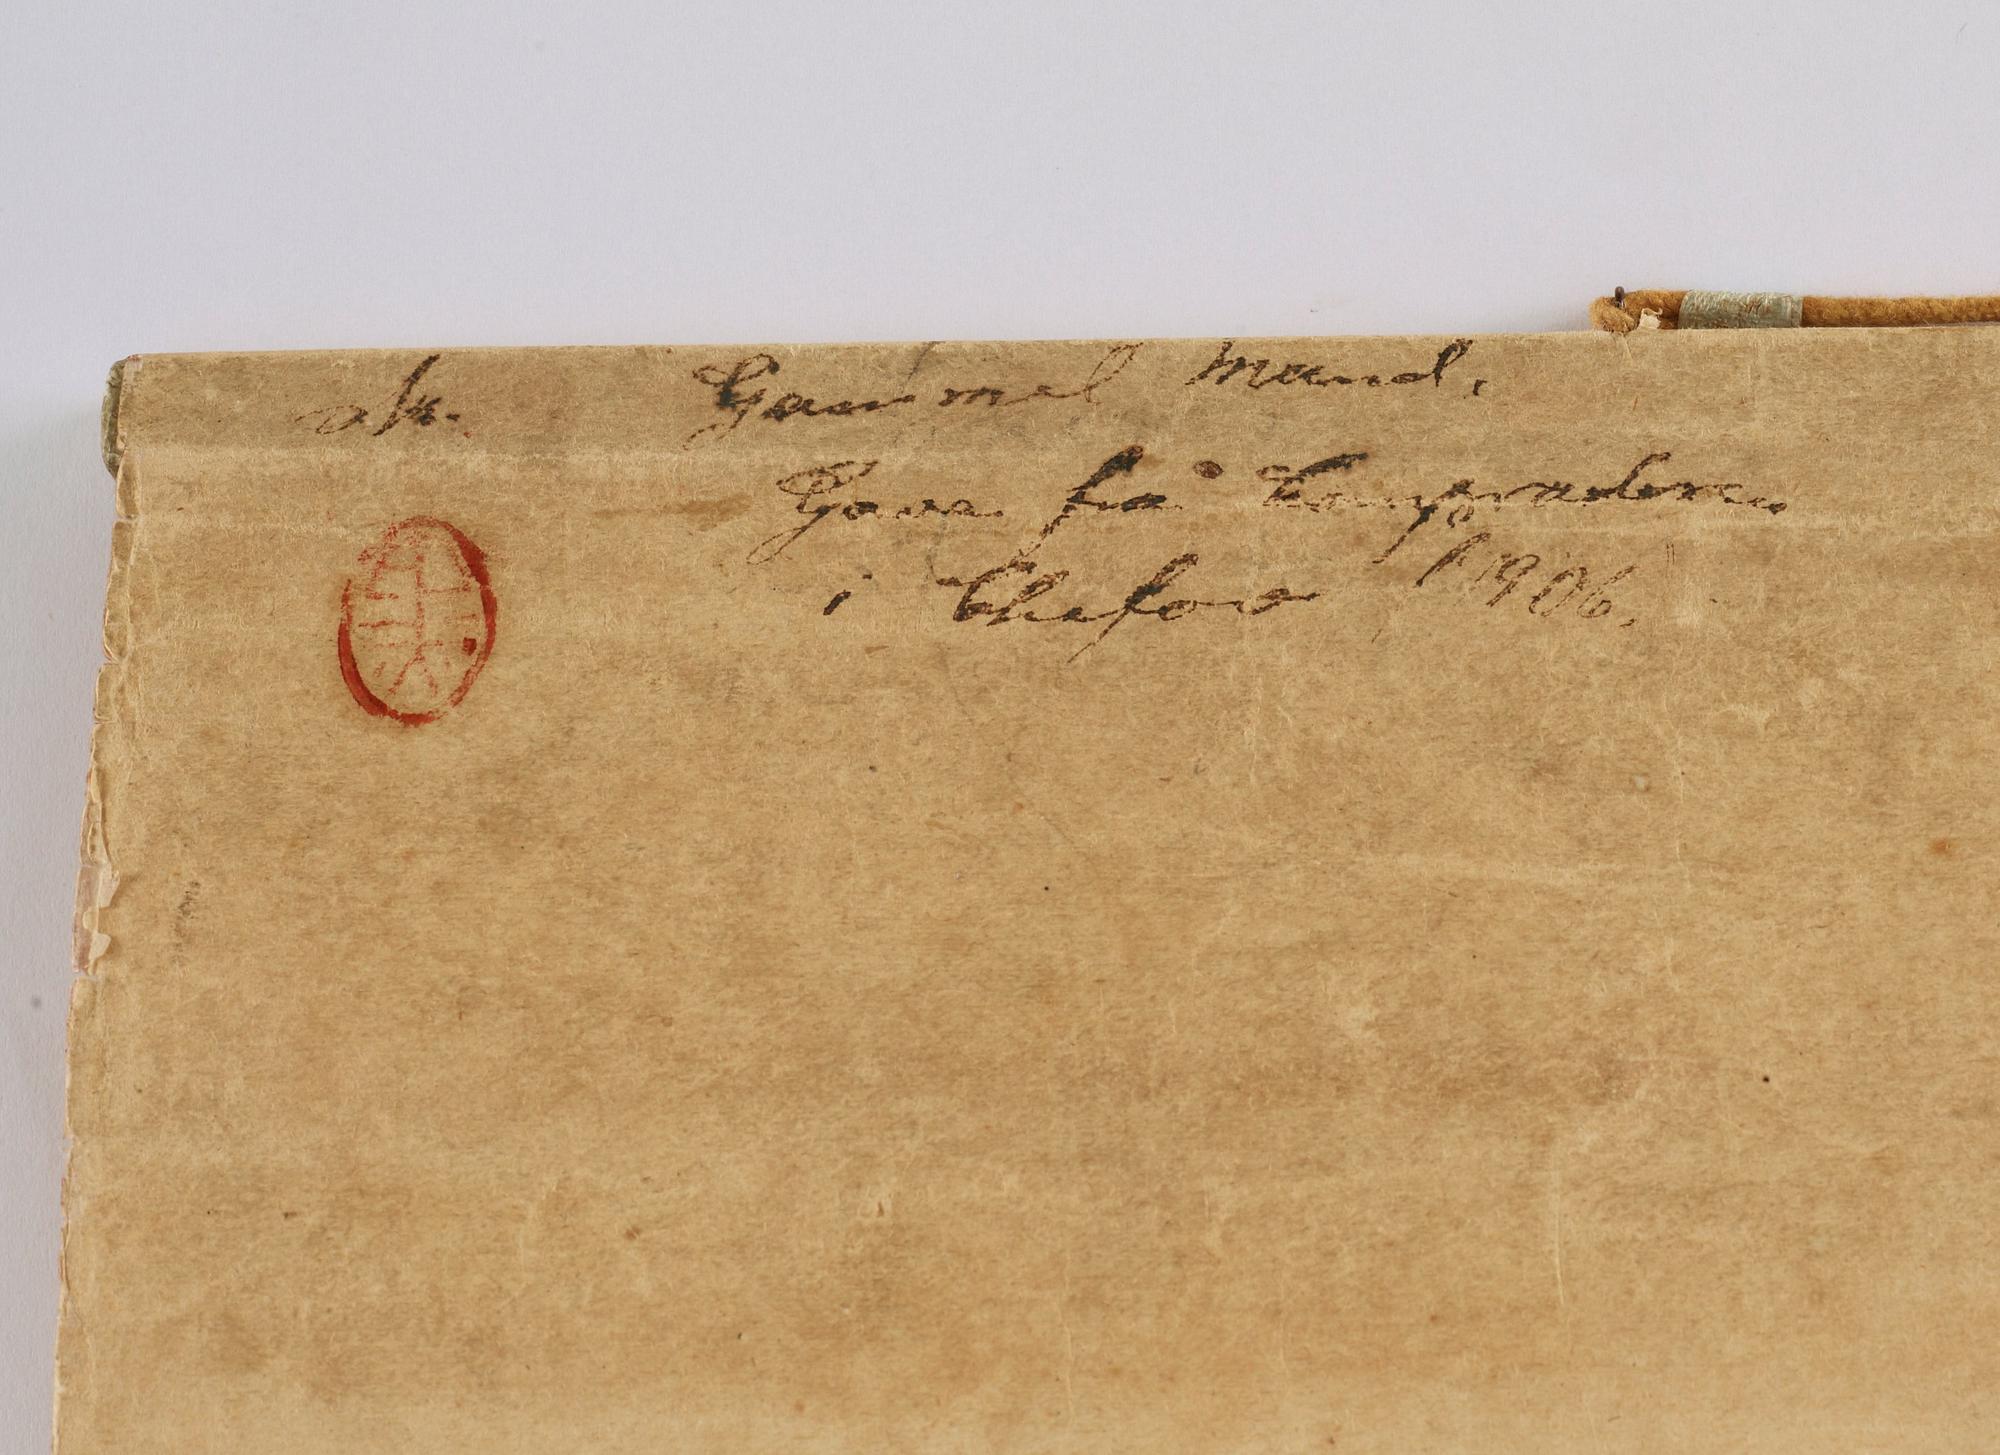 Gammel Mand.
Gave fra Compradoren
i Chefoo 1906.